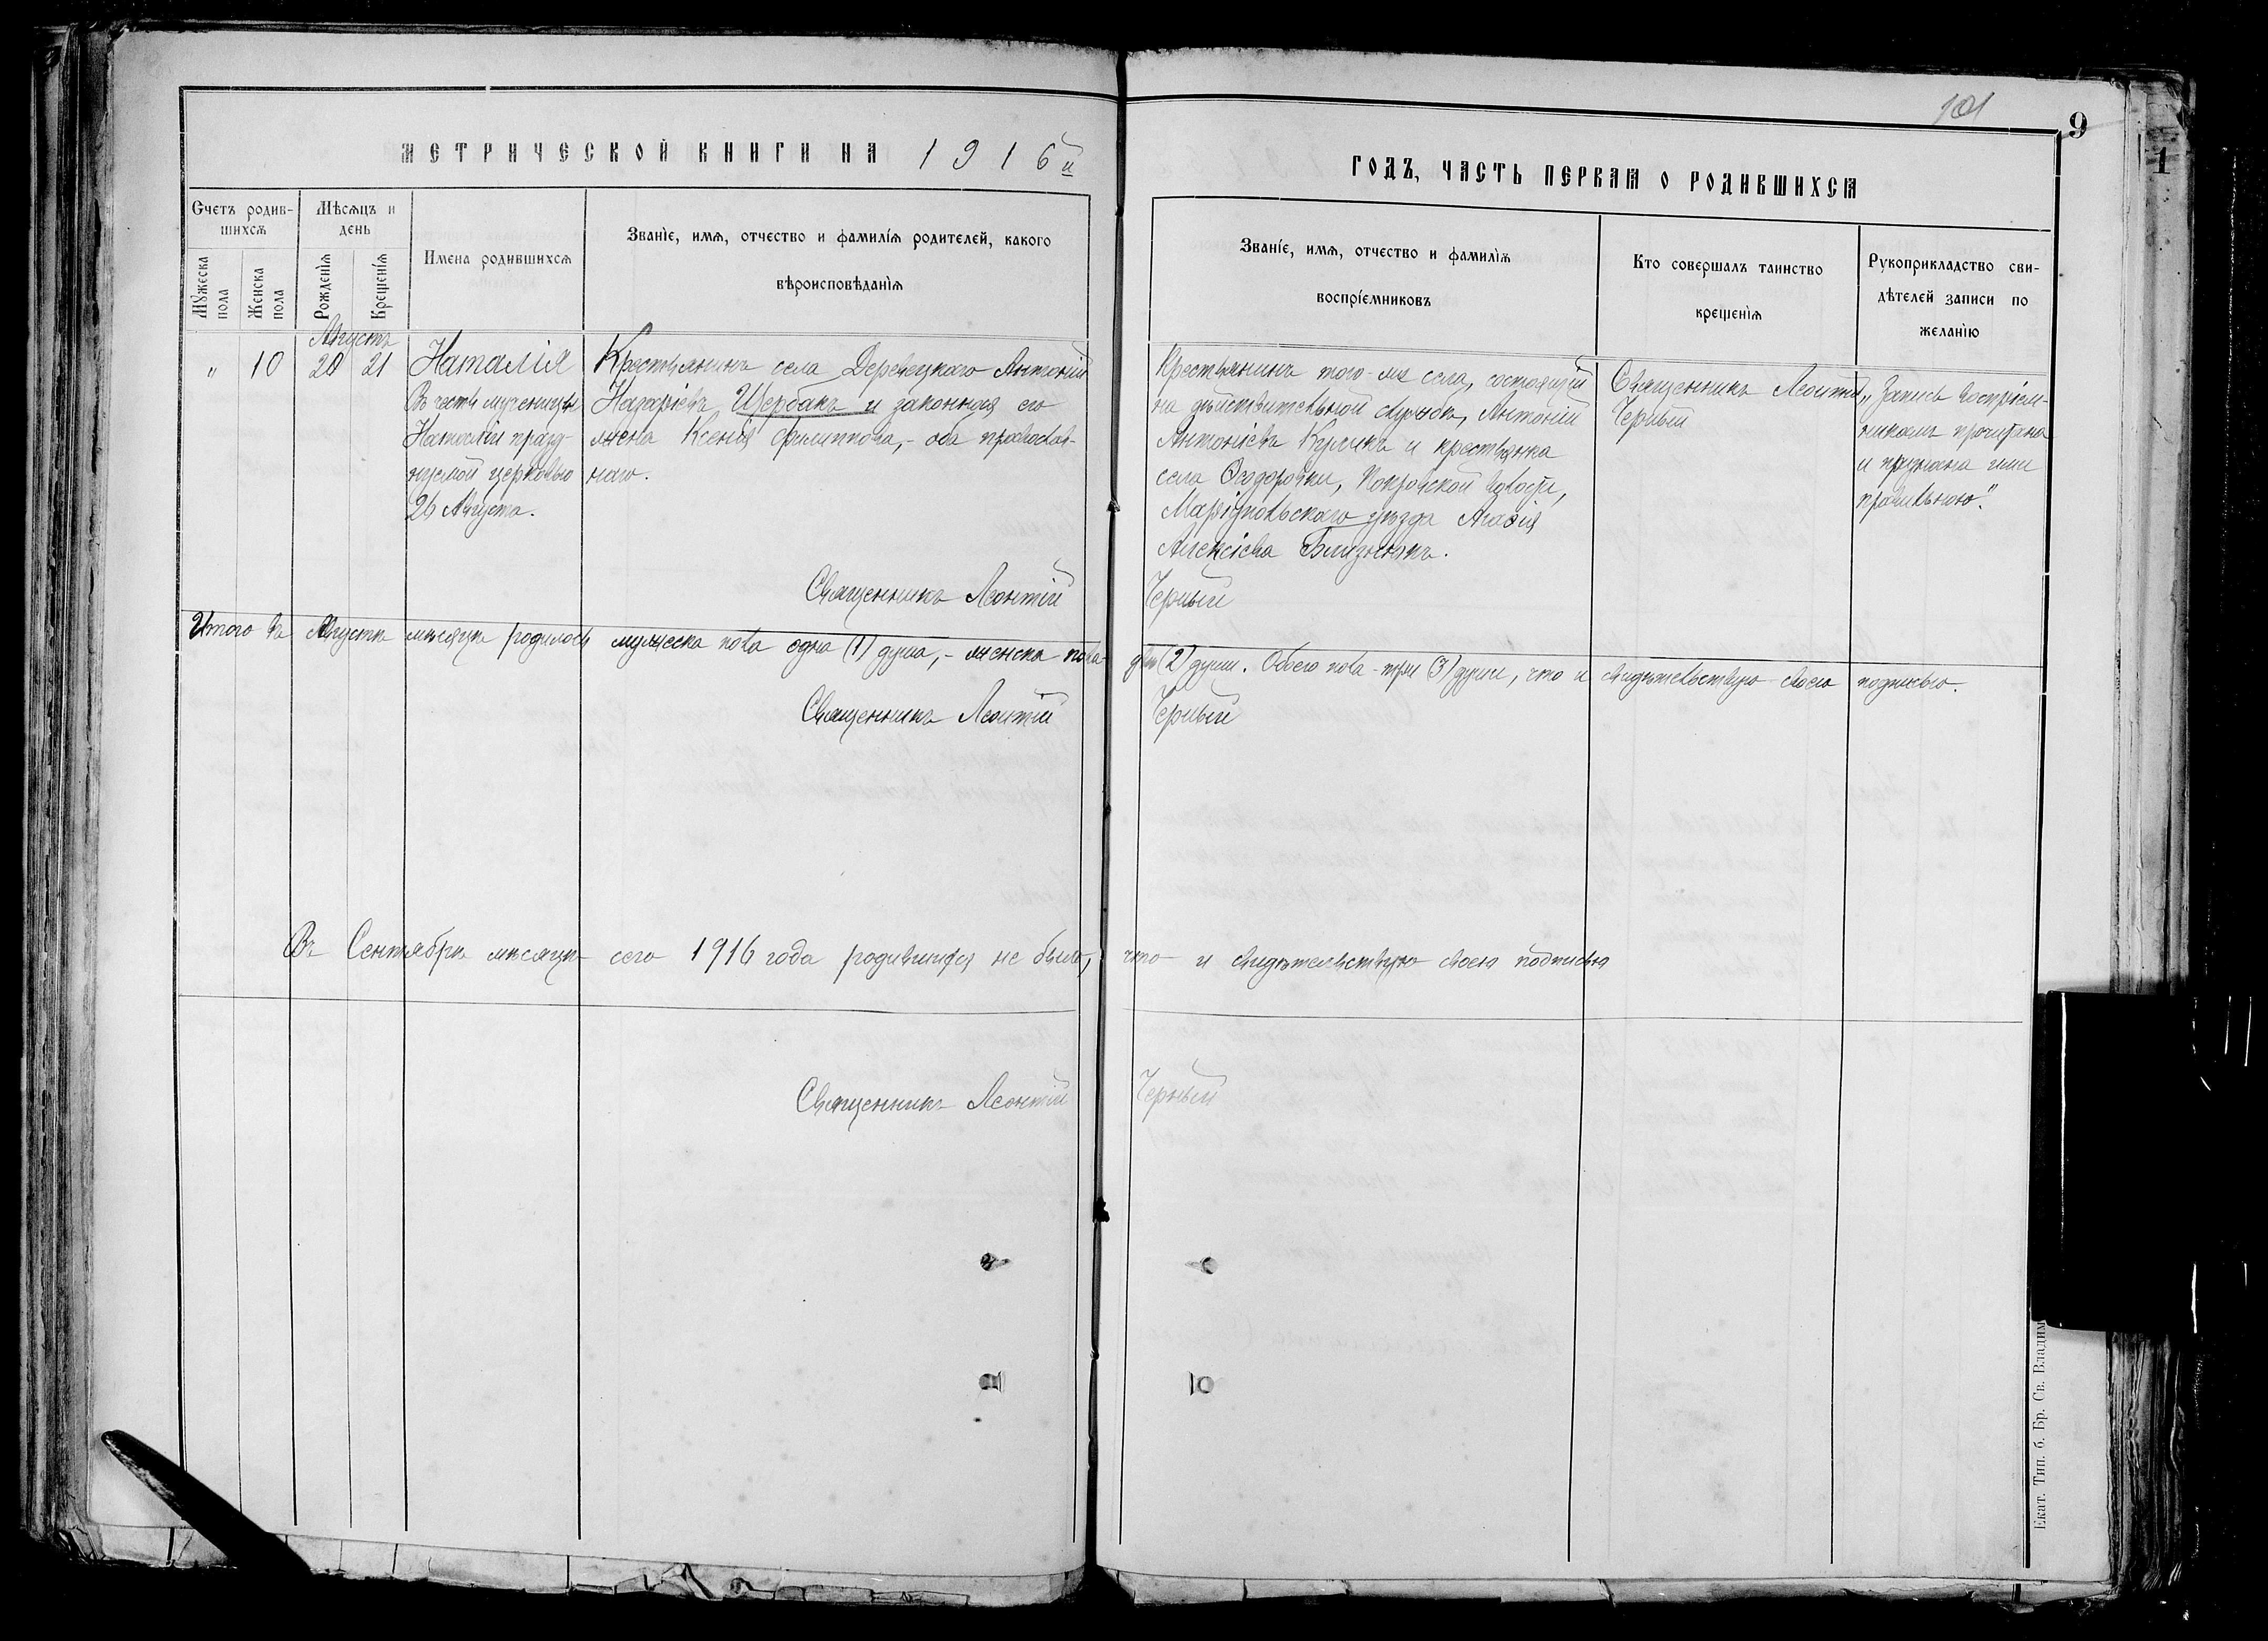 101
9
1
МЕТРИЧЕСКОЙ КНИГИ НА 1916й
ГОДЪ, ЧАСТЬ ПЕРВАЯ О РОДИВШИХСЯ
Счетъ родив-
шихсѧ
Мужеска пола
Женска пола
Мѣсѧцъ и
день
Рожденіѧ
Крещеніѧ
Имена родившихсѧ
Званіе, имѧ, отчество и фамиліѧ родителей, какого
вѣроисповѣданіѧ
Званіе, имѧ, отчество и фамиліѧ
воспріемниковъ
Кто совершалъ таинство
крещеніѧ
Рукоприкладство сви-
дѣтелей записи по
желанію
Августъ
„ 10 20 21
Наталія
Въ честь мученицы
Наталіи празд-
нуемой церковью
26 Августа.
Крестьянинъ села Деревецкаго Антоній
Назаріевъ Щербакъ и законная его
жена Ксенія Филиппова, - оба православ-
наго.
Крестьянинъ того-же села, состоящій
на дѣйствительной службѣ, Антоній
Антоніевъ и крестьянка
села Ѳедоровки, Покровской волости,
Маріупольскаго уѣзда Агафія
Алексіева Близнюкъ.
Священникъ Леонтій
Черный
„Запись воспріем-
никомъ прочитана
и признана ими
правильною".
Священникъ Леонтій Черный
Итого въ Августѣ мѣсяцѣ родилось мужеска пола одна (1) душа, - женска пола - двѣ (2) души. Обоего пола - три (3) души, что и свидѣтельствую своею подписью.
Священникъ Леонтій Черный
Въ Сентябрѣ мѣсяцѣ сего 1916 года родившихся не было, что и свидѣтельствую своею подписью
Священникъ Леонтій Черный
Екат. Тип. б. Бр. Св. Владим